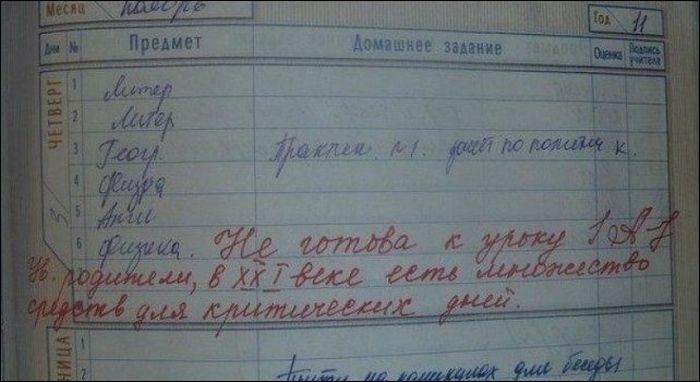 Месяц ноябрь
Год 11
Дни № Предмет Домашнее задание Оценка Подпись учителя
ЧЕТВЕРГ 3
1 Литер
2 Литер
3 Геогр. Практич. №1.
4 Физра
5 Англ
6 Физика. Не готова к уроку
Ув. родители, в XXI веке есть множество
средств для критических дней.
НИЦА
1
2 на каникулах для беседы